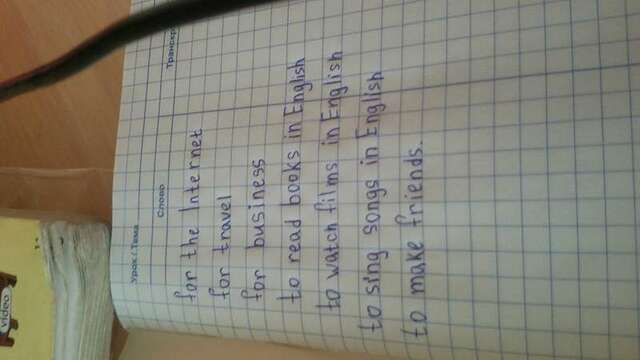 video
Урок / Тема
Слово
Транскр
for the Internet
for travel
for business
to read books in English
to watch films in English
to sing songs in English
to make friends.